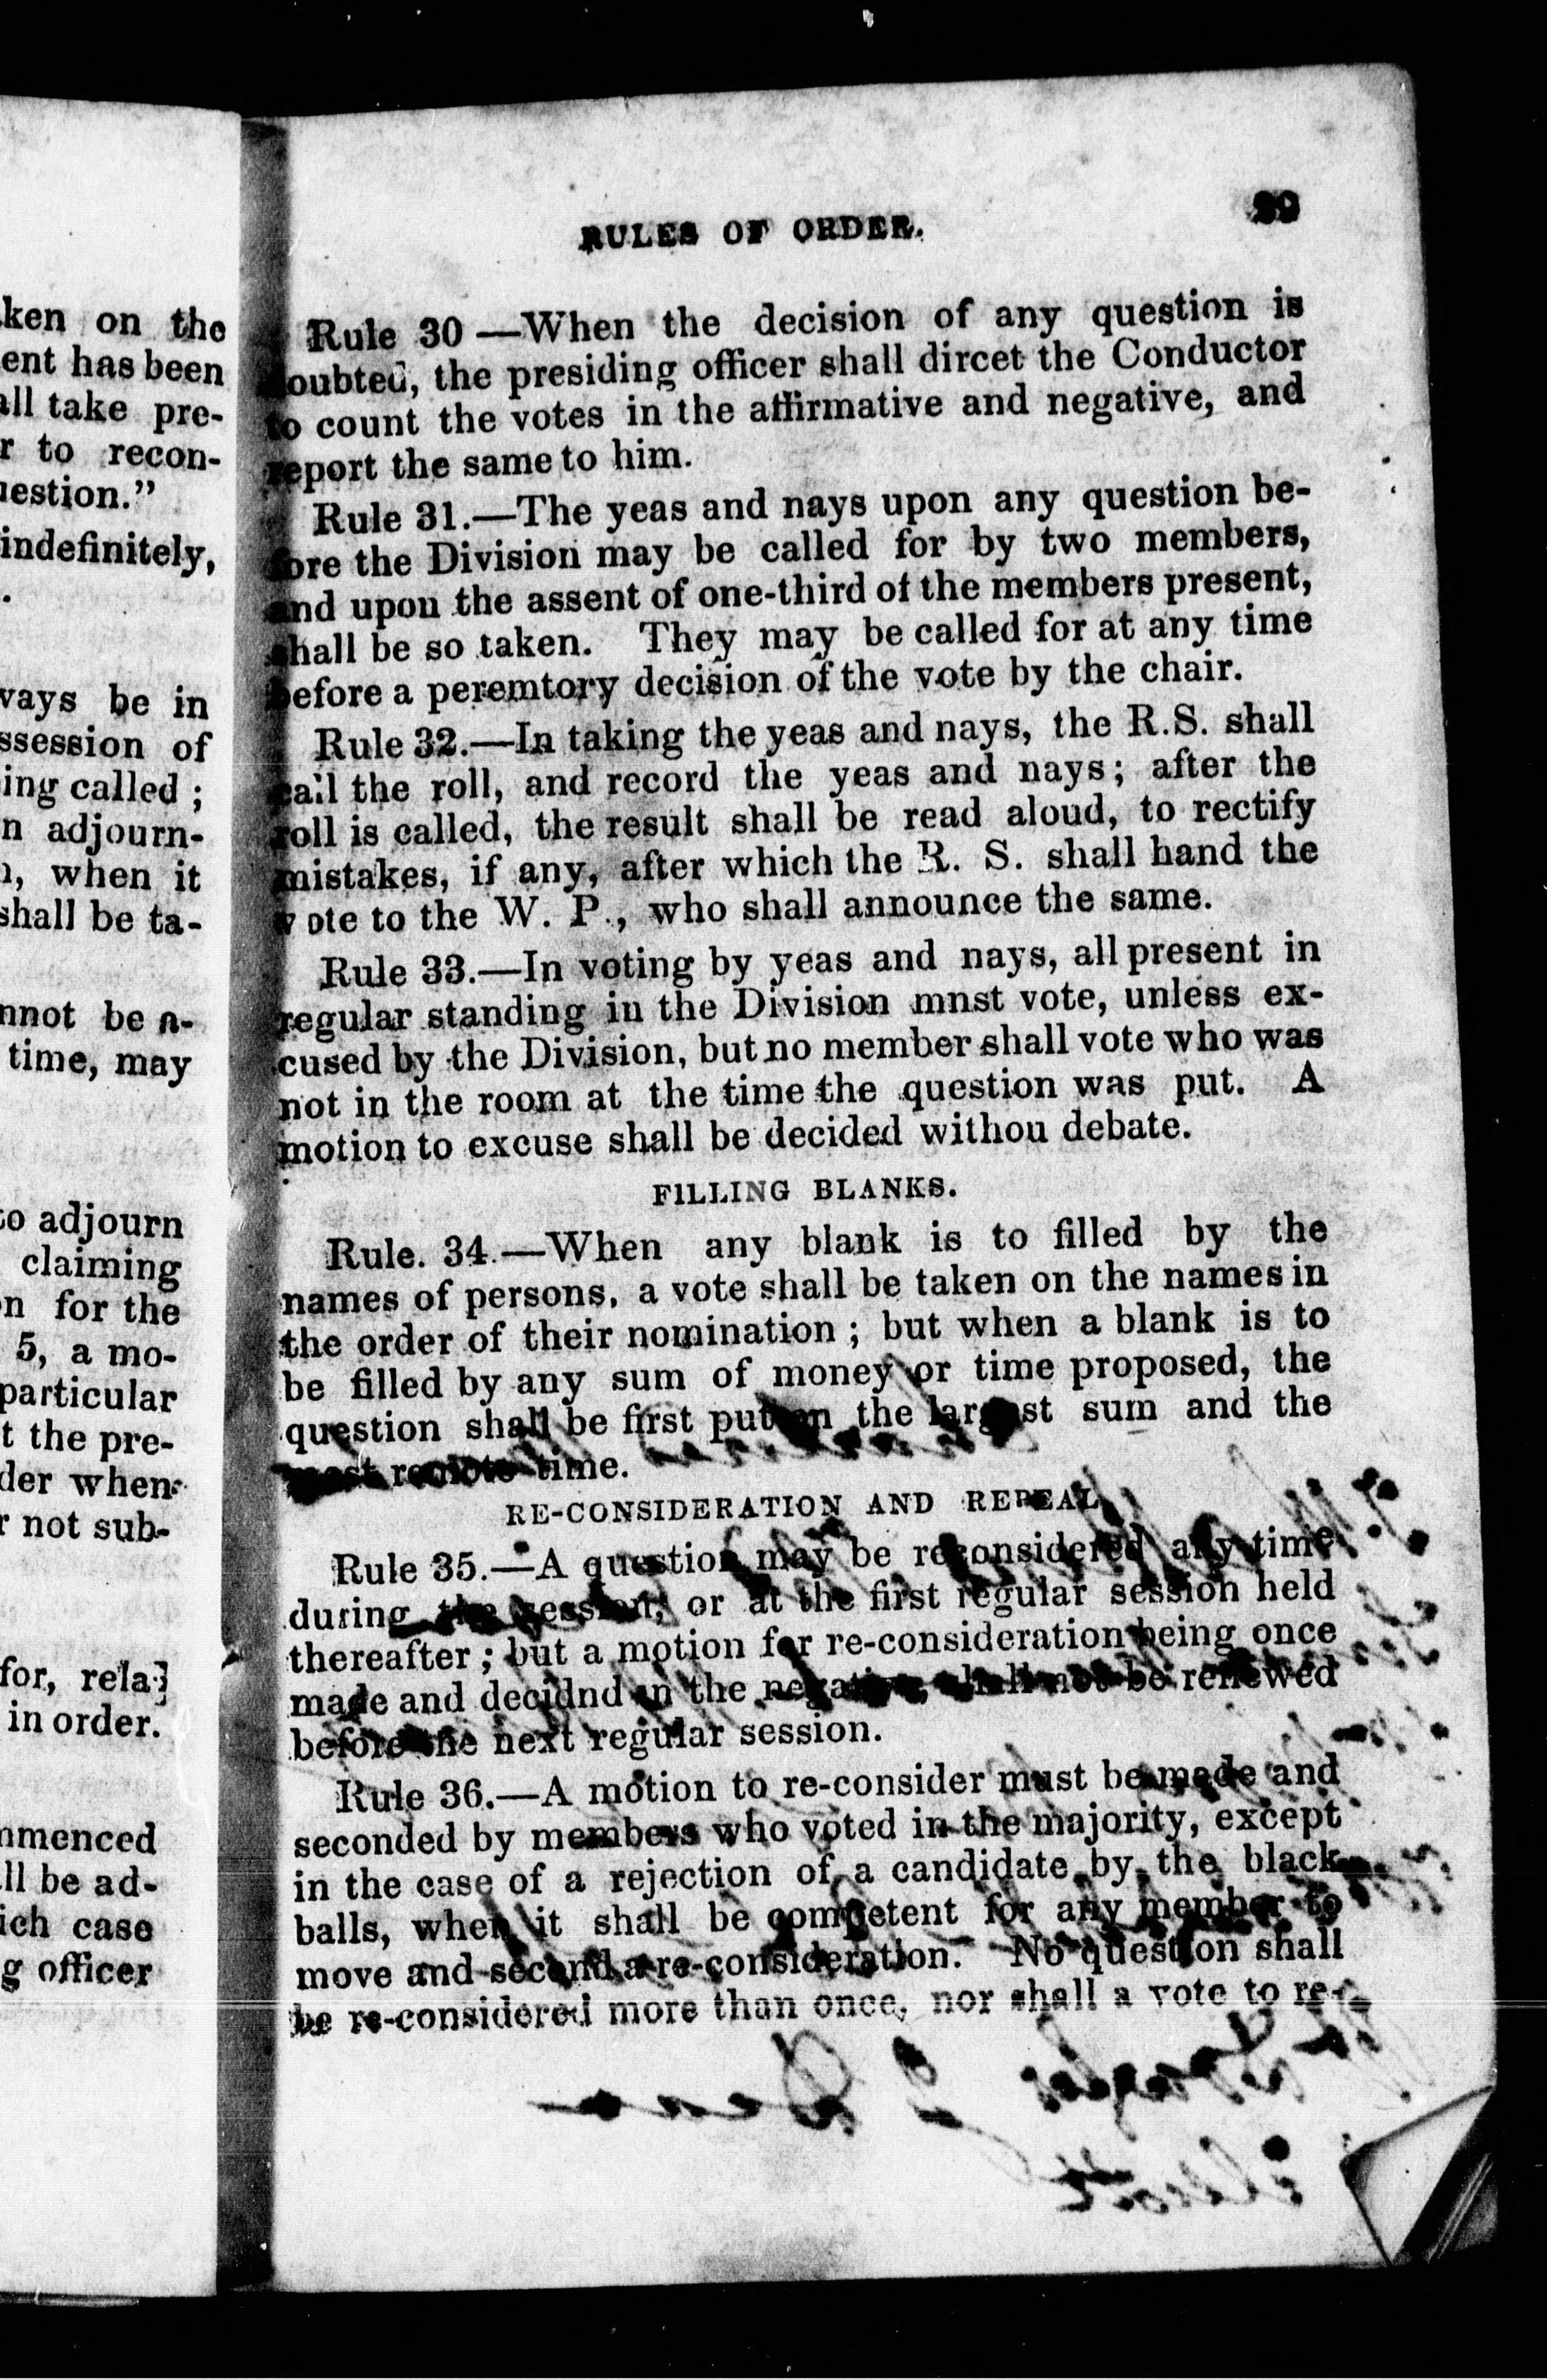 ken on the
ent has been
all take pre-
r to recon-
uestion."
indefinitely,
ways be in
ssession of
ing called ;
n adjourn-
, when it
shall be ta-
nnot be a-
time, may
to adjourn
claiming
n for the
5, a mo-
particular
t the pre-
der when
r not sub-
for, rela
in order.
mmenced
ll be ad-
ich case
g officer
RULES OF ORDER. 39
Rule 30 —When the decision of any question is
doubted, the presiding officer shall dircet the Conductor
to count the votes in the affirmative and negative, and
report the same to him.
Rule 31.—The yeas and nays upon any question be-
fore the Division may be called for by two members,
and upon the assent of one-third of the members present,
shall be so taken. They may be called for at any time
before a peremtory decision of the vote by the chair.
Rule 32.—In taking the yeas and nays, the R.S. shall
call the roll, and record the yeas and nays; after the
roll is called, the result shall be read aloud, to rectify
mistakes, if any, after which the R. S. shall hand the
vote to the W. P., who shall announce the same.
Rule 33.—In voting by yeas and nays, all present in
regular standing in the Division mnst vote, unless ex-
cused by the Division, but no member shall vote who was
not in the room at the time the question was put. A
motion to excuse shall be decided withou debate.
FILLING BLANKS.
Rule. 34.—When any blank is to filled by the
names of persons, a vote shall be taken on the names in
the order of their nomination ; but when a blank is to
be filled by any sum of money or time proposed, the
question shall be first put on the largest sum and the
most remote time.
RE-CONSIDERATION AND REPEAL
Rule 35.—A question may be reconsidered any time
during the session, or at the first regular session held
thereafter ; but a motion for re-consideration being once
made and decidnd in the negative, shall not be renewed
before the next regular session.
Rule 36.—A motion to re-consider must be made and
seconded by members who voted in the majority, except
in the case of a rejection of a candidate by the black
balls, when it shall be competent for any member to
move and second a re-consideration. No question shall
be re-considered more than once, nor shall a vote to re-